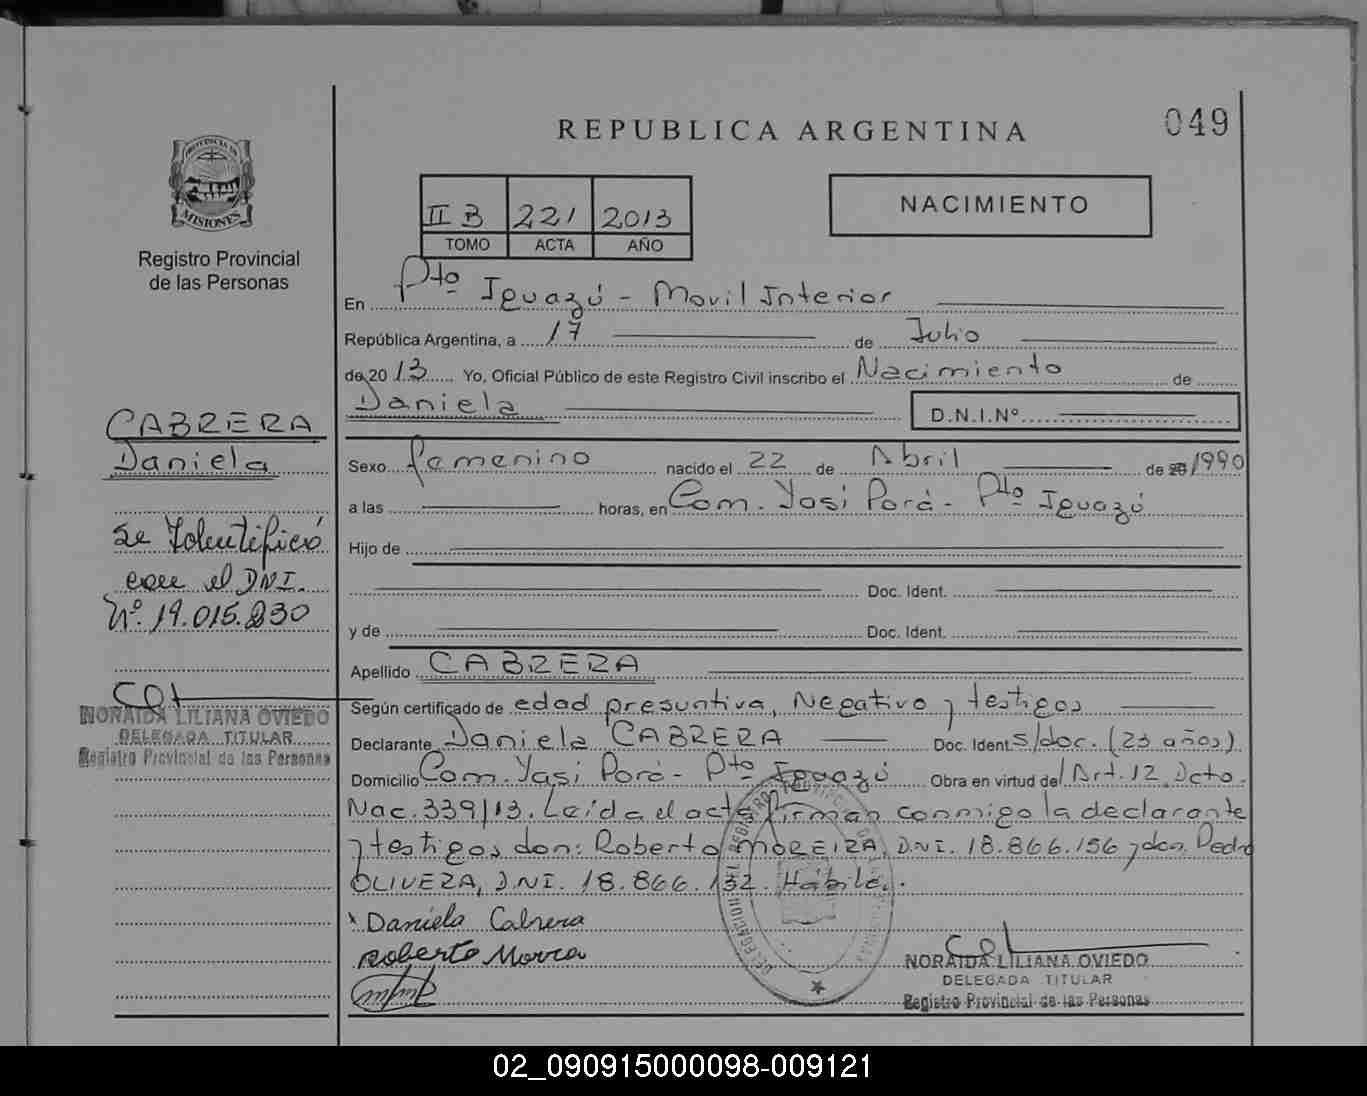 REPUBLICA ARGENTINA
049
PROVINCIA DE
MISIONES
Registro Provincial
de las Personas
II B 221 2013
TOMO ACTA AÑO
NACIMIENTO
En Pto Iguazú - Movil Interior
República Argentina, a 17 de Julio
de 20 13 Yo, Oficial Público de este Registro Civil inscribo el Nacimiento de
Daniela D.N.I.Nº
Sexo femenino nacido el 22 de Abril de 1990
a las horas, en Com. Yasi Porá - Pto Iguazú
Hijo de
Doc. Ident.
y de Doc. Ident.
Apellido CABRERA
Según certificado de edad presuntiva, Negativo y testigos
Declarante Daniela CABRERA Doc. Ident. s/doc. (23 años)
Domicilio Com. Yasi Porá - Pto Iguazú Obra en virtud del Art. 12 Dcto.
Nac. 339/13. Leída el acta firman conmigo la declarante
y testigos don: Roberto MOREIRA, D.N.I. 18.866.156 y don Pedro
OLIVERA, D.N.I. 18.866.132. Hábiles.
x Daniela Cabrera
Roberto
NORAIDA LILIANA OVIEDO
DELEGADA TITULAR
Registro Provincial de las Personas
CABRERA
Daniela
Se Identificó
con el DNI.
Nº. 19.015.830
NORAIDA LILIANA OVIEDO
DELEGADA TITULAR
Registro Provincial de las Personas
02_090915000098-009121